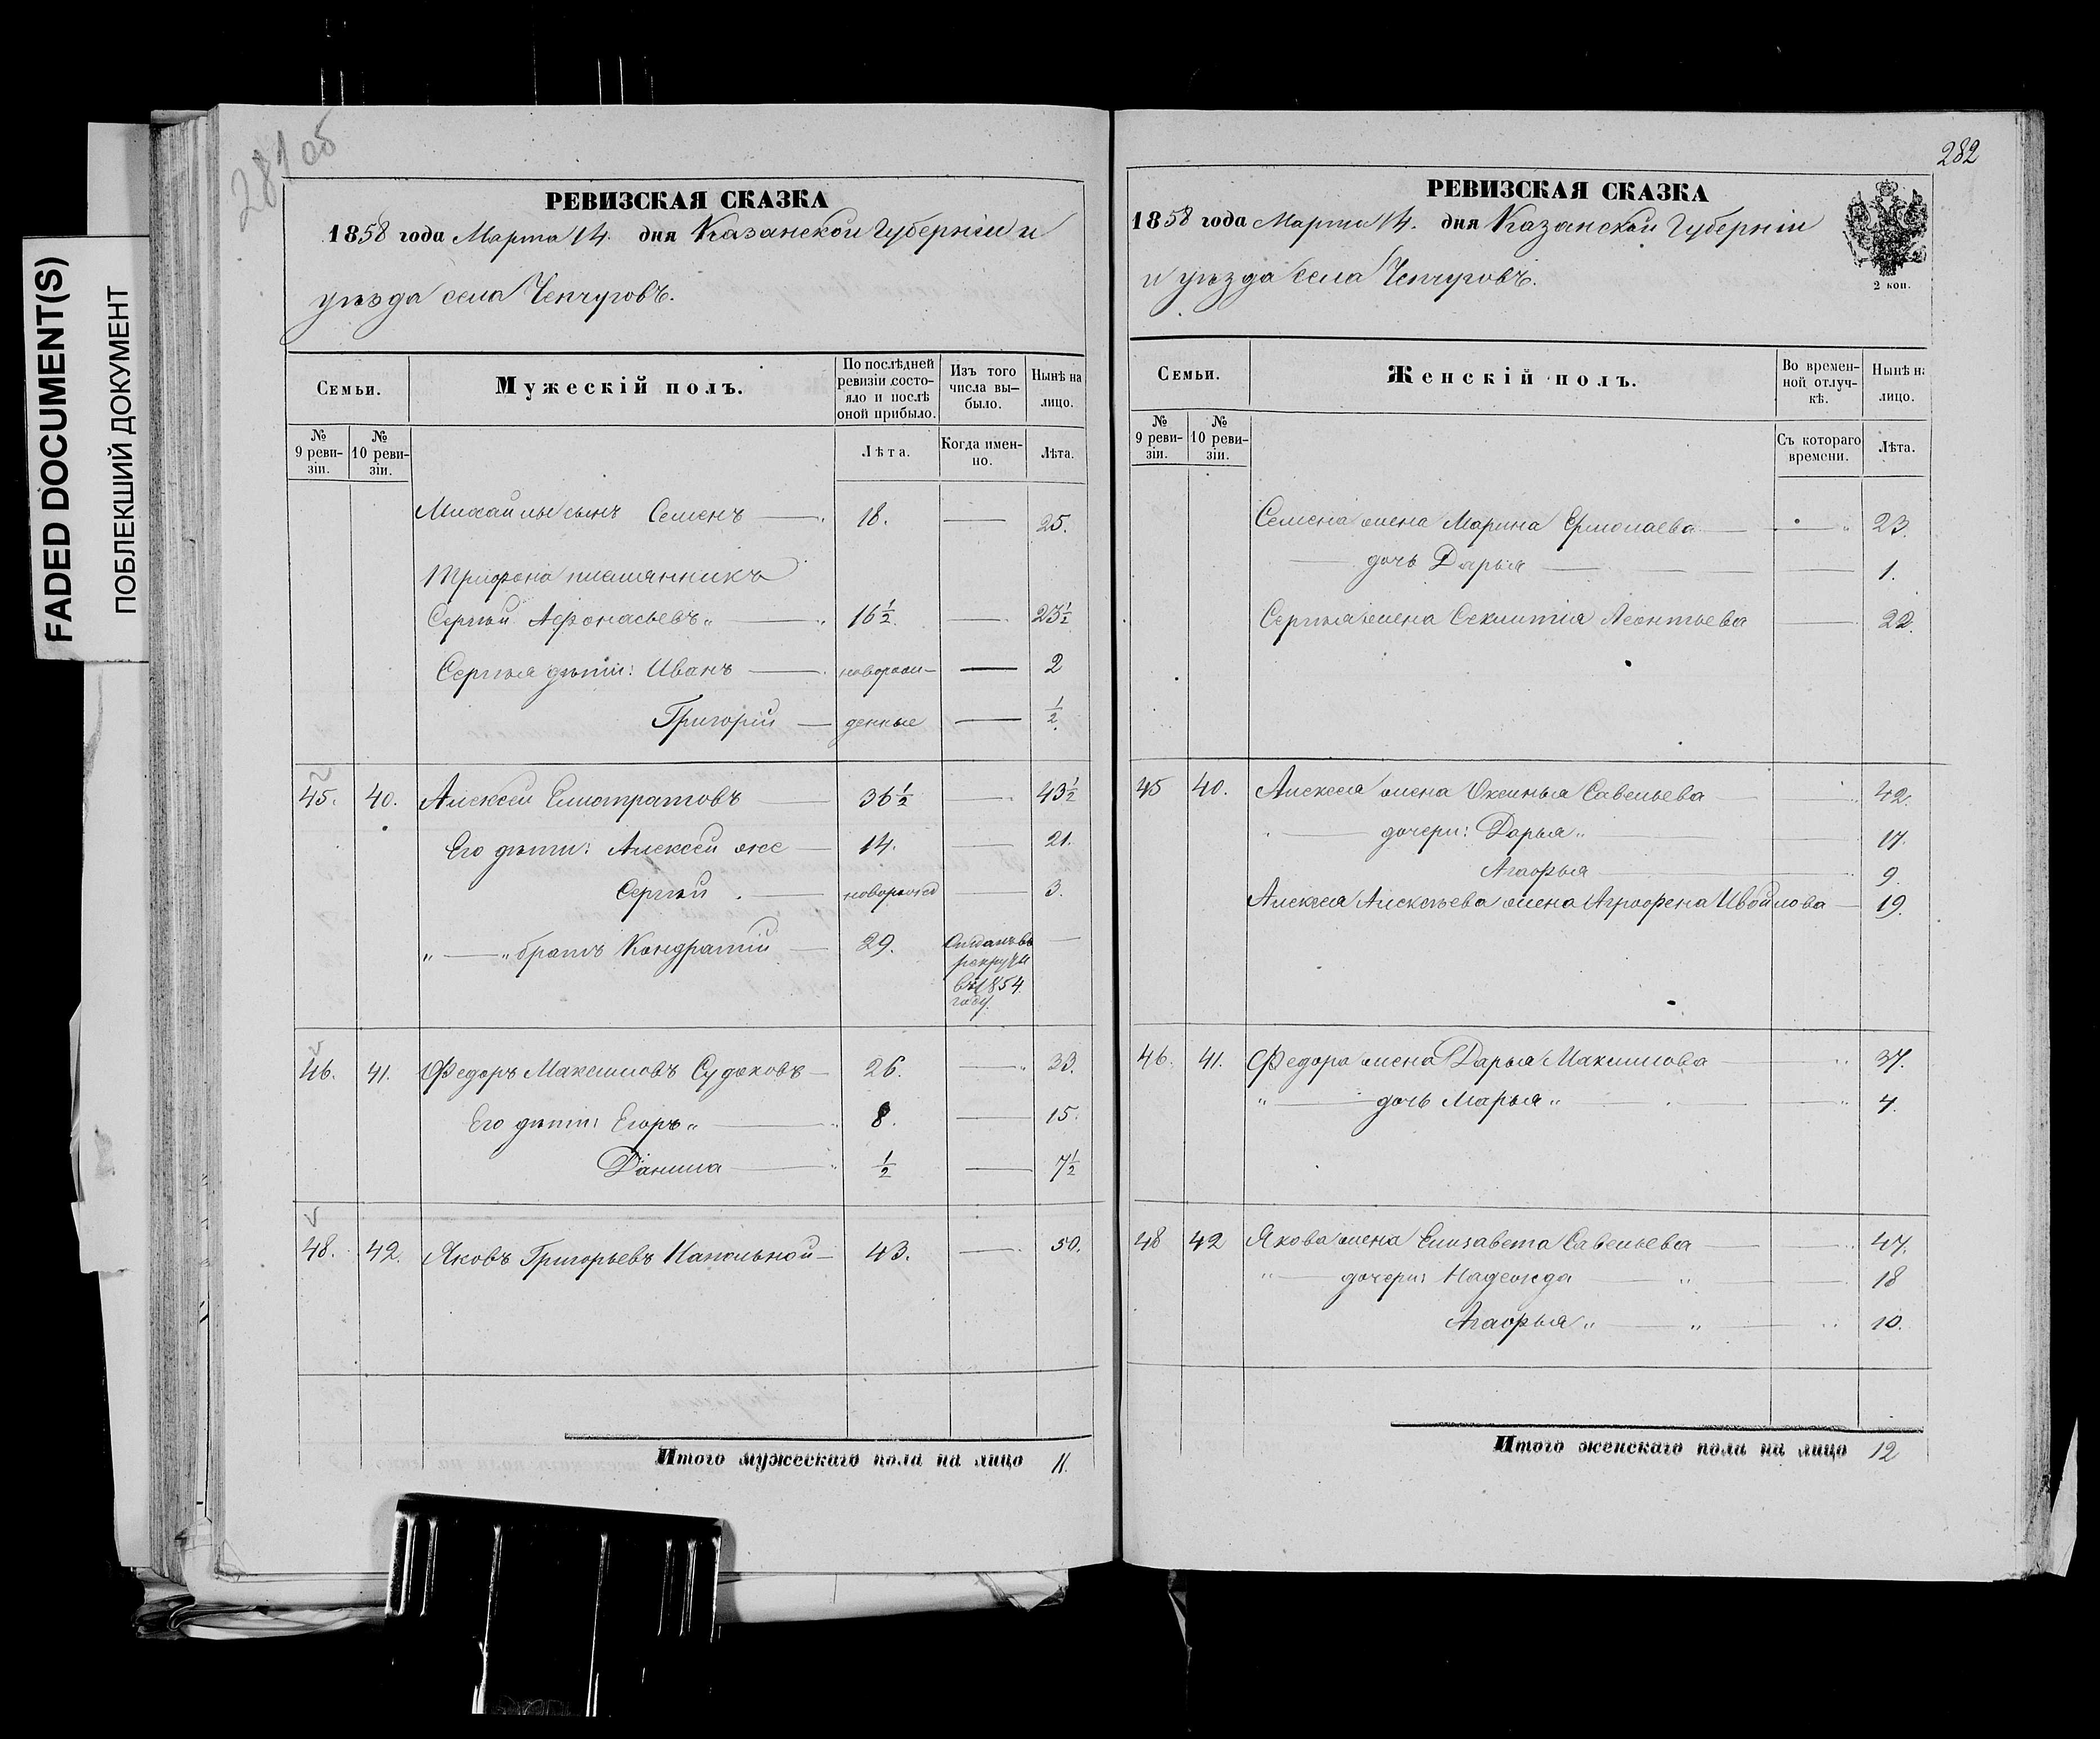 FADED DOCUMENT(S)
ПОБЛЕКШИЙ ДОКУМЕНТ
281 об
РЕВИЗСКАЯ СКАЗКА
1858 года Марта 14. дня Казанской Губерніи и
уѣзда села Чепчуговъ.
Семьи.
Мужескій полъ.
По послѣдней ревизіи состояло и послѣ оной прибыло.
Изъ того числа выбыло.
Нынѣ на лицо.
№ 9 ревизіи.
№ 10 ревизіи.
Лѣта.
Когда именно.
Лѣта.
Михайлы сынъ Семенъ 18. 25.
Трифона племянникъ
Сергѣй Афонасьевъ 16½ 23½
Сергѣя дѣти: Иванъ новорож- 2
Григорій денные ½
45. 40. Алексей Елистратовъ 36½ 43½
Его дѣти: Алексей же 14. 21.
Сергѣй новорожд 3.
„ — „ братъ Кондратій 29. Отданъ въ
рекруты
въ 1854
году
46. 41. Федоръ Максимовъ Судаковъ 26. 33.
Его дѣти: Егоръ „ 8. 15.
Данила ½ 7½
48. 42. Яковъ Григорьевъ Напольной 43. 50.
Итого мужескаго пола на лицо 11.
282
РЕВИЗСКАЯ СКАЗКА
1858 года Марта 14. дня Казанской Губерніи
и уѣзда села Чепчуговъ.
2 коп.
Семьи.
Женскій полъ.
Во временной отлучкѣ.
Нынѣ на лицо.
№ 9 ревизіи.
№ 10 ревизіи.
Съ котораго времени.
Лѣта.
Семена жена Марина Ермолаева 23.
дочь Дарья 1.
Сергѣя жена Секлитія Леонтьева 22.
45 40. Алексея жена Оксинья Савельева 42.
дочери: Дарья „ 17.
Агафья 9.
Алексея Алексѣева жена Аграфена Ивойлова 19.
46. 41. Федора жена Дарья Максимова 37.
„ дочь Марья „ 4.
48 42 Якова жена Елизавета Савельева 47.
„ дочери: Надежда „ 18
Агафья „ „ 10.
Итого женскаго пола на лицо 12